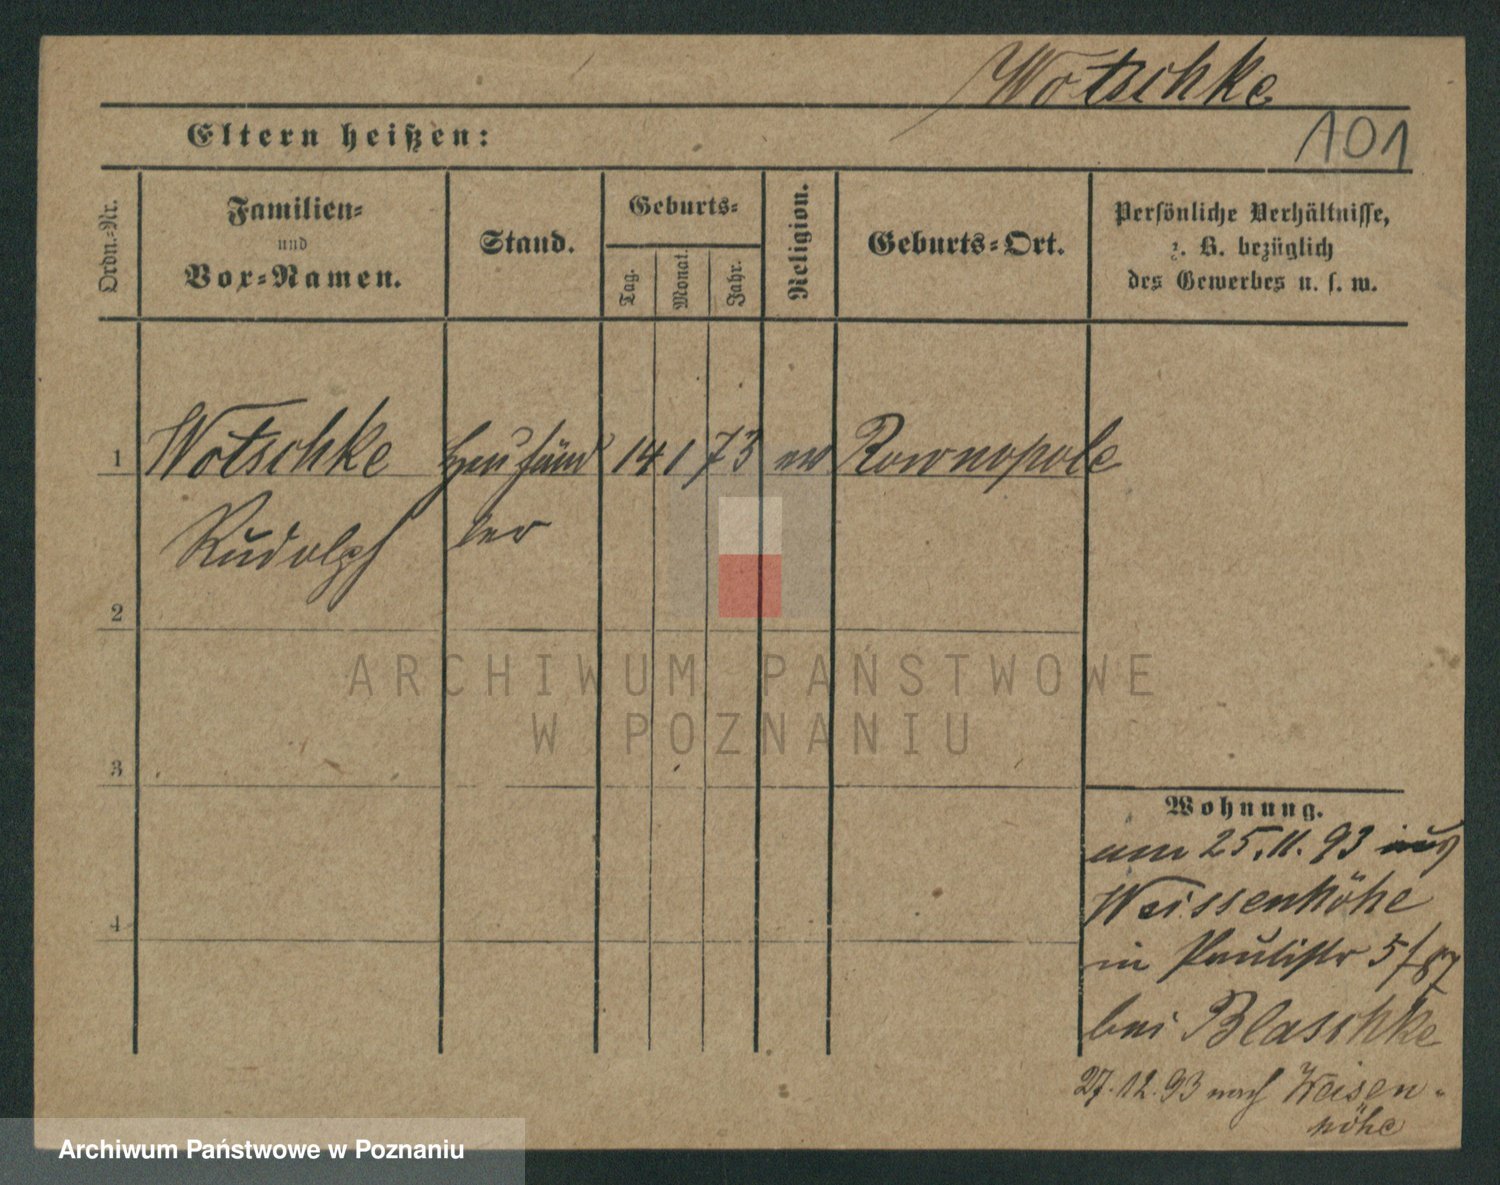 Wotschke
101
Eltern heißen:
Ordn.-Nr.
Familien-
und
Vor-Namen.
Stand.
Geburts-
Tag.
Monat.
Jahr.
Religion.
Geburts-Ort.
Persönliche Verhältnisse,
z. B. bezüglich
des Gewerbes u. s. w.
1 Wotschke 14 1 73 ev Rownopole
Rudolph ler
2
3
4
Wohnung.
am 25.11.93 aus
Weissenhöhe
in Paulistr 5/87
bei Blaschke
27.12.93 nach Weisen-
höhe
ARCHIWUM PAŃSTWOWE
W POZNANIU
Archiwum Państwowe w Poznaniu